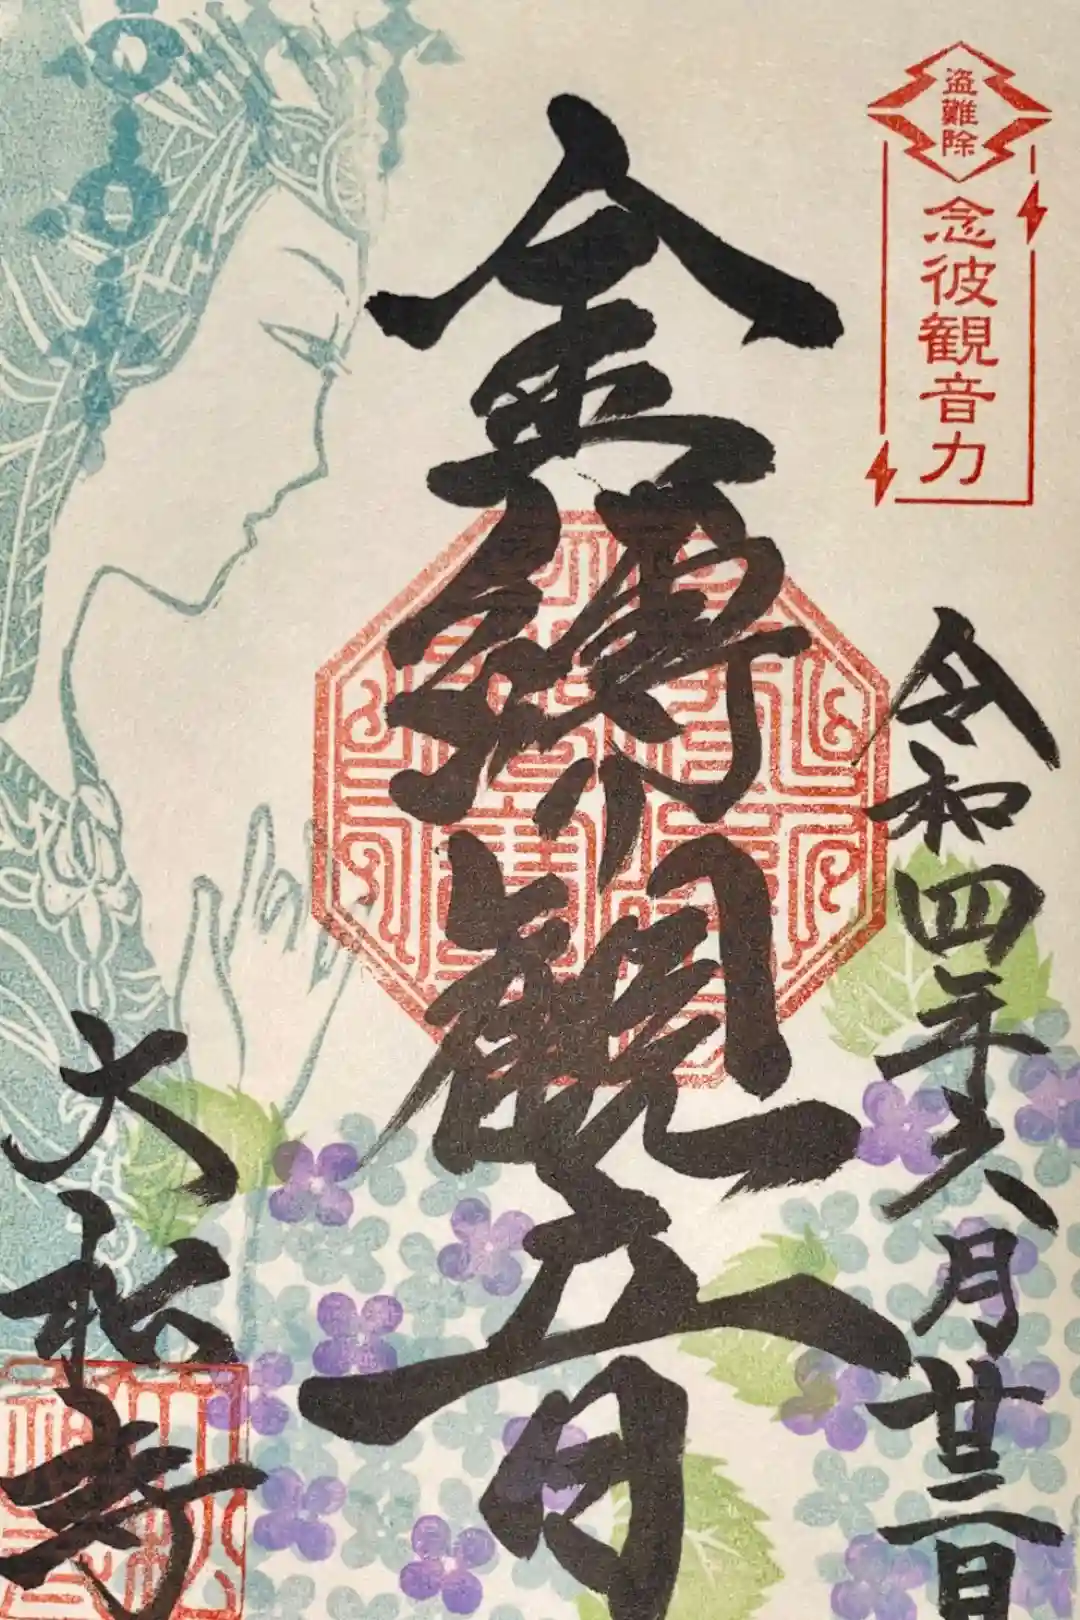 盗難除
念彼観音力
令和四年六月廿二日
金縛観音
大松寺